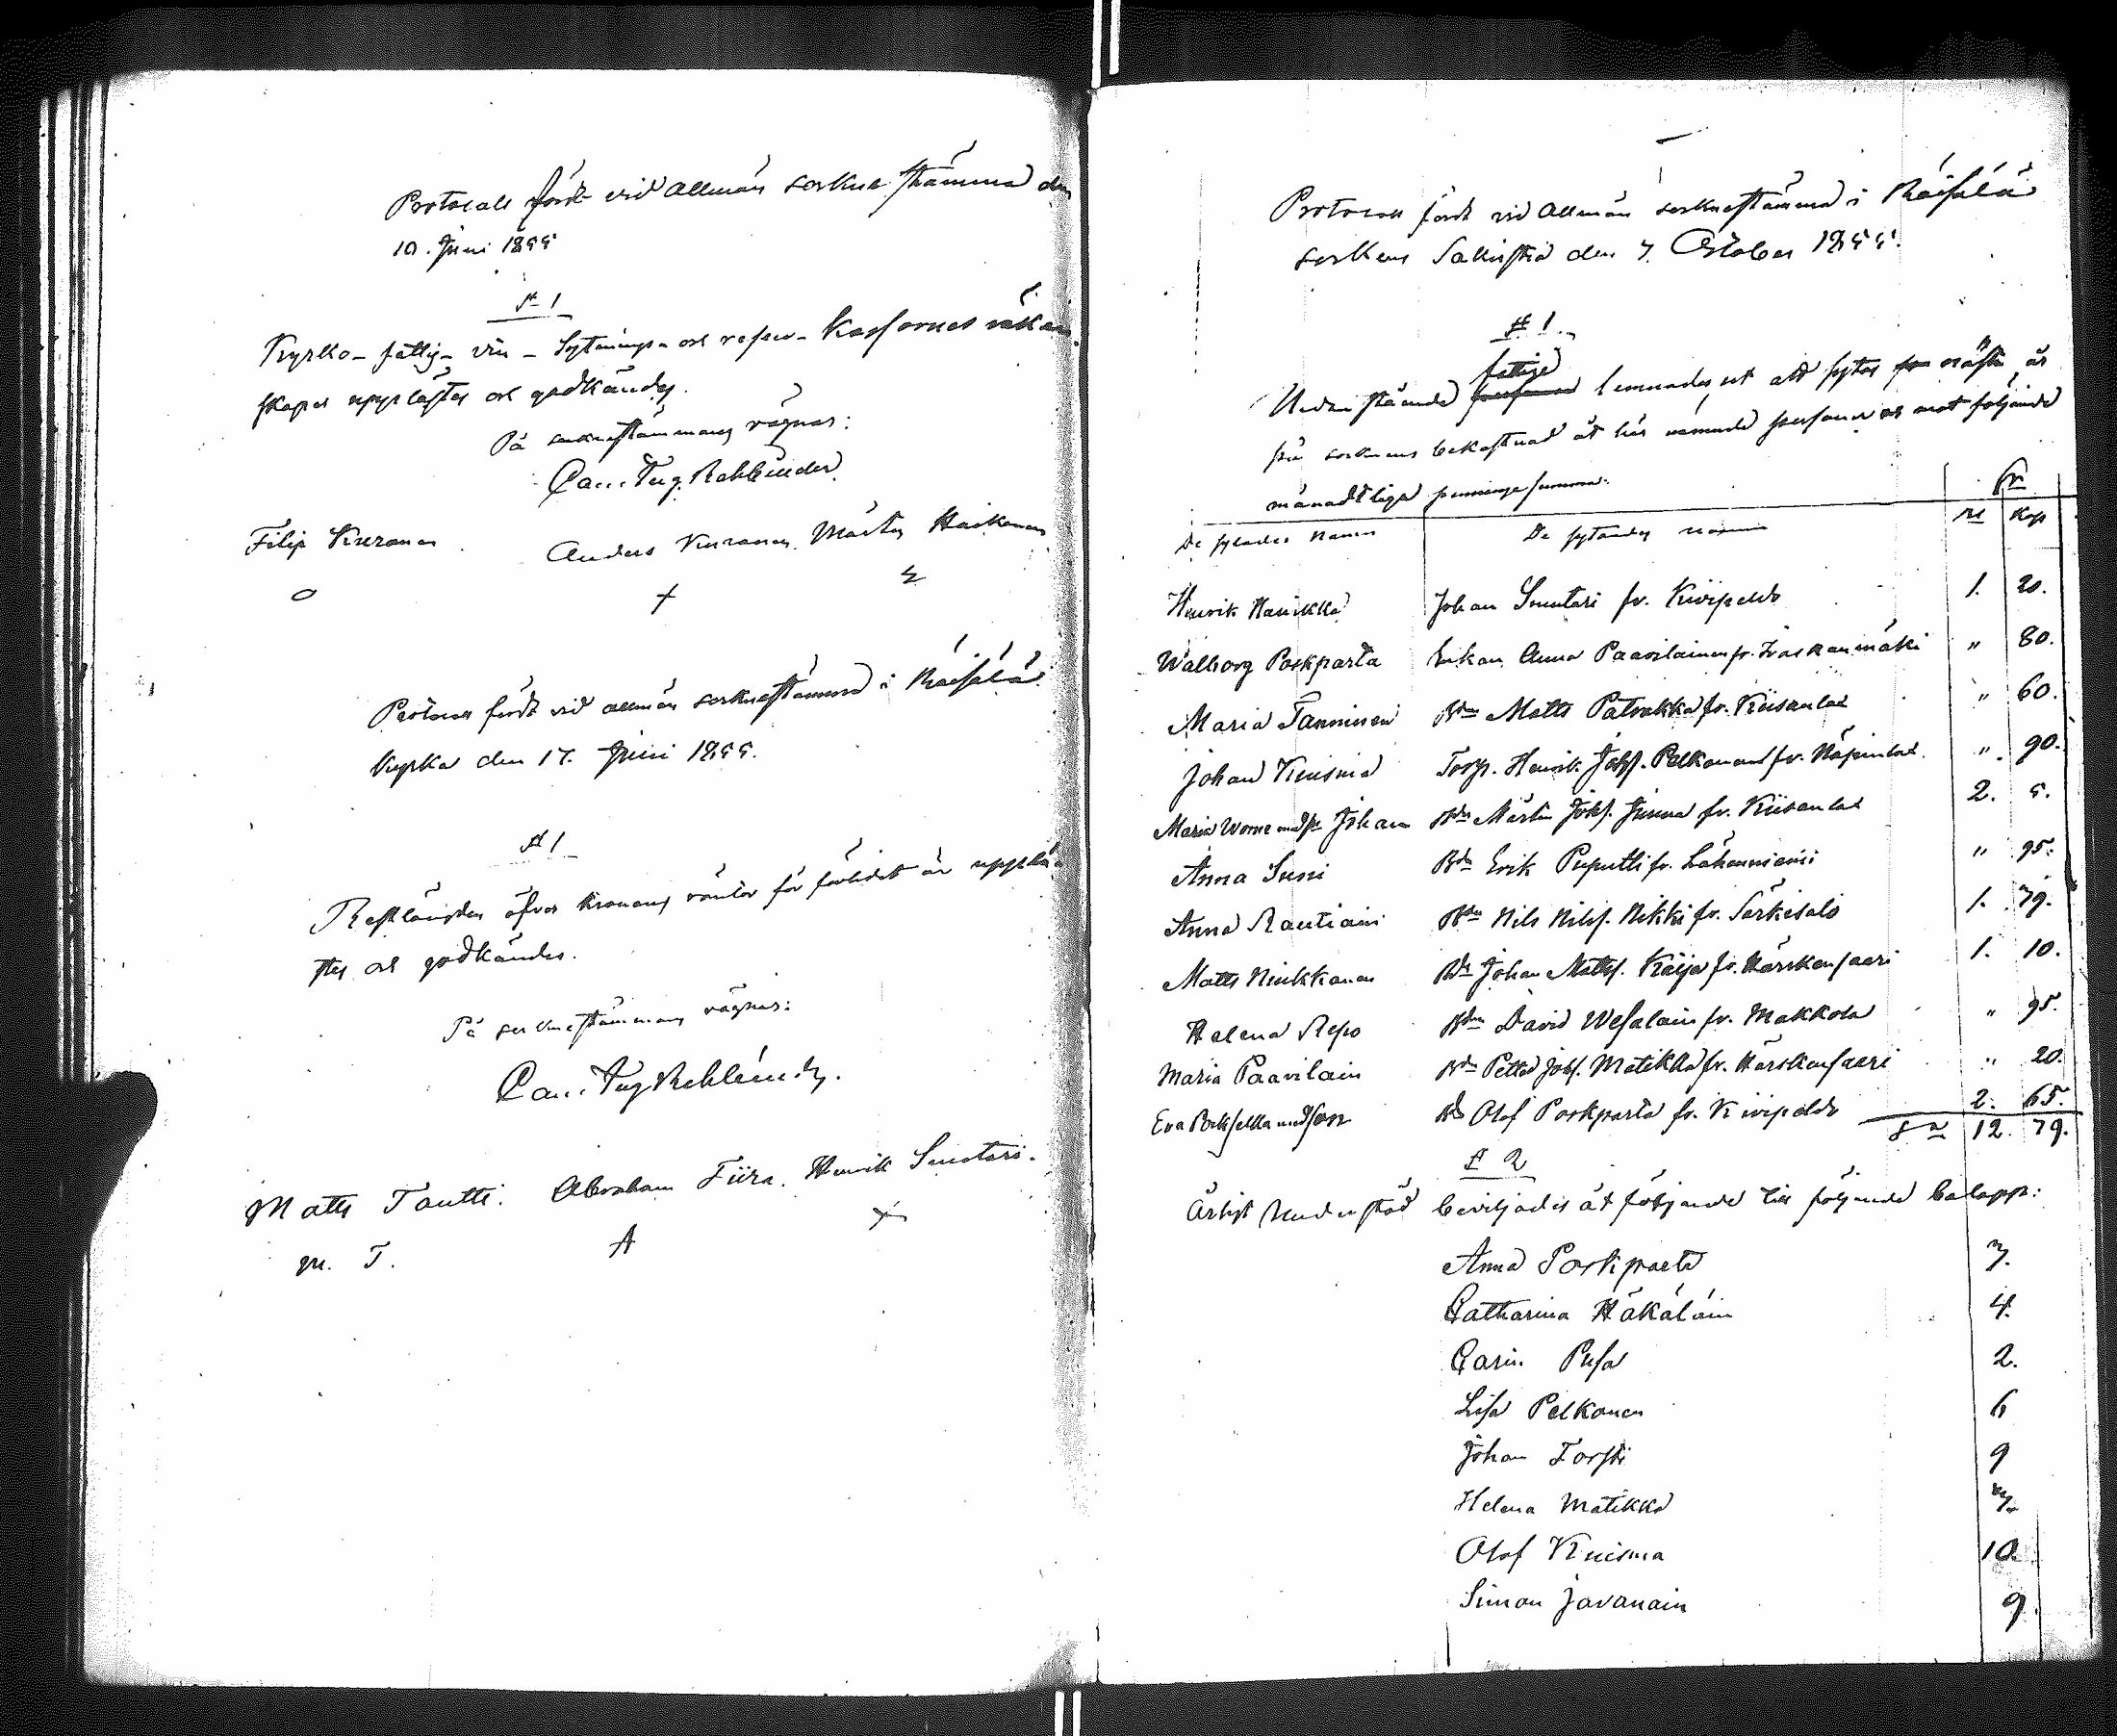 Protocoll fördt vid Allmän sockne stämma den
10. Juni 1855
§ 1
Kyrko- fattig- vin- Sytnings- och reserv- Kassornas räken
skaper upplästes och godkändes.
På socknestämmans vägnar:
Carl Aug. Rehbinder.
Filip Kuronen. Anders Kuronen. Mårten Haikonen
o + 
Protocoll fördt vid allmän socknestämma i Räisälä
kyrka den 17. Juni 1855.
§ 1
Restlängden öfver kronans räntor för förlidet år upplä
stes och godkändes.
På socknestämmans vägnar:
Carl Aug Rehbinder.
Matts Tautti. Abraham Tiira. Henrik Smutari.
M. T. A x
Protocoll fördt vid Allmän socknestämma i Räisälä
sockens Sakirstia den 7. October 1855.
§ 1.
fattige
Nedanstående personer lemnades ut att sytas från nästa år
på socknens bekostnad åt här nämnde personer och mot följande
månadtliga penningesumma.
De sytades namn De sytandes namn Sr Rl Kop
Henrik Hauikka Johan Smutari fr. Kivipelto 1. 20.
Walborg Porkparta Enkan Anna Paavilainen fr. Ivaskanmäki " 80.
Maria Tanninen Bdn Matts Patrakka fr. Kiisanlaks " 60.
Johan Kuisma Torp. Henrik Johss. Pelkonen fr. Näpinlaks. " 90.
Maria Worne med sn Johan Bdn Mårten Johss. Junna fr. Kiisanlaks 2. 5.
Anna Suni Bdn Erik Puputti fr. Lähenniemi " 95.
Anna Rautiain Bdn Nils Nilss. Nikki fr. Särkisalo 1. 79.
Matts Ninkkonen Bdn Johan Matss. Kaija fr. Härskensaari 1. 10.
Helena Repo Bdn David Wesalain fr. Makkola " 95.
Maria Paavilain Bdn Petter Johss. Matikka fr. Härskensaari " 20.
Eva Porkselka med son Bdn Olof Porkparta fr. Kivipelto 2. 65.
Sa 12. 79.
§ 2
Årligt Understöd beviljades åt följande till följande belopp:
Anna Porkparta 3.
Catharina Häkäläin 4.
Carin Pusa 2.
Lisa Pelkonen 6
Johan Torsti 9
Helena Matikka 3.
Olof Kuisma 10.
Simon Javanain 9.